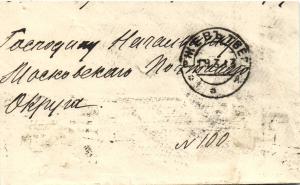 Господину Начальнику
Московскаго Почтоваго
Округа
РЖЕВЪ ТВЕР.
N 100